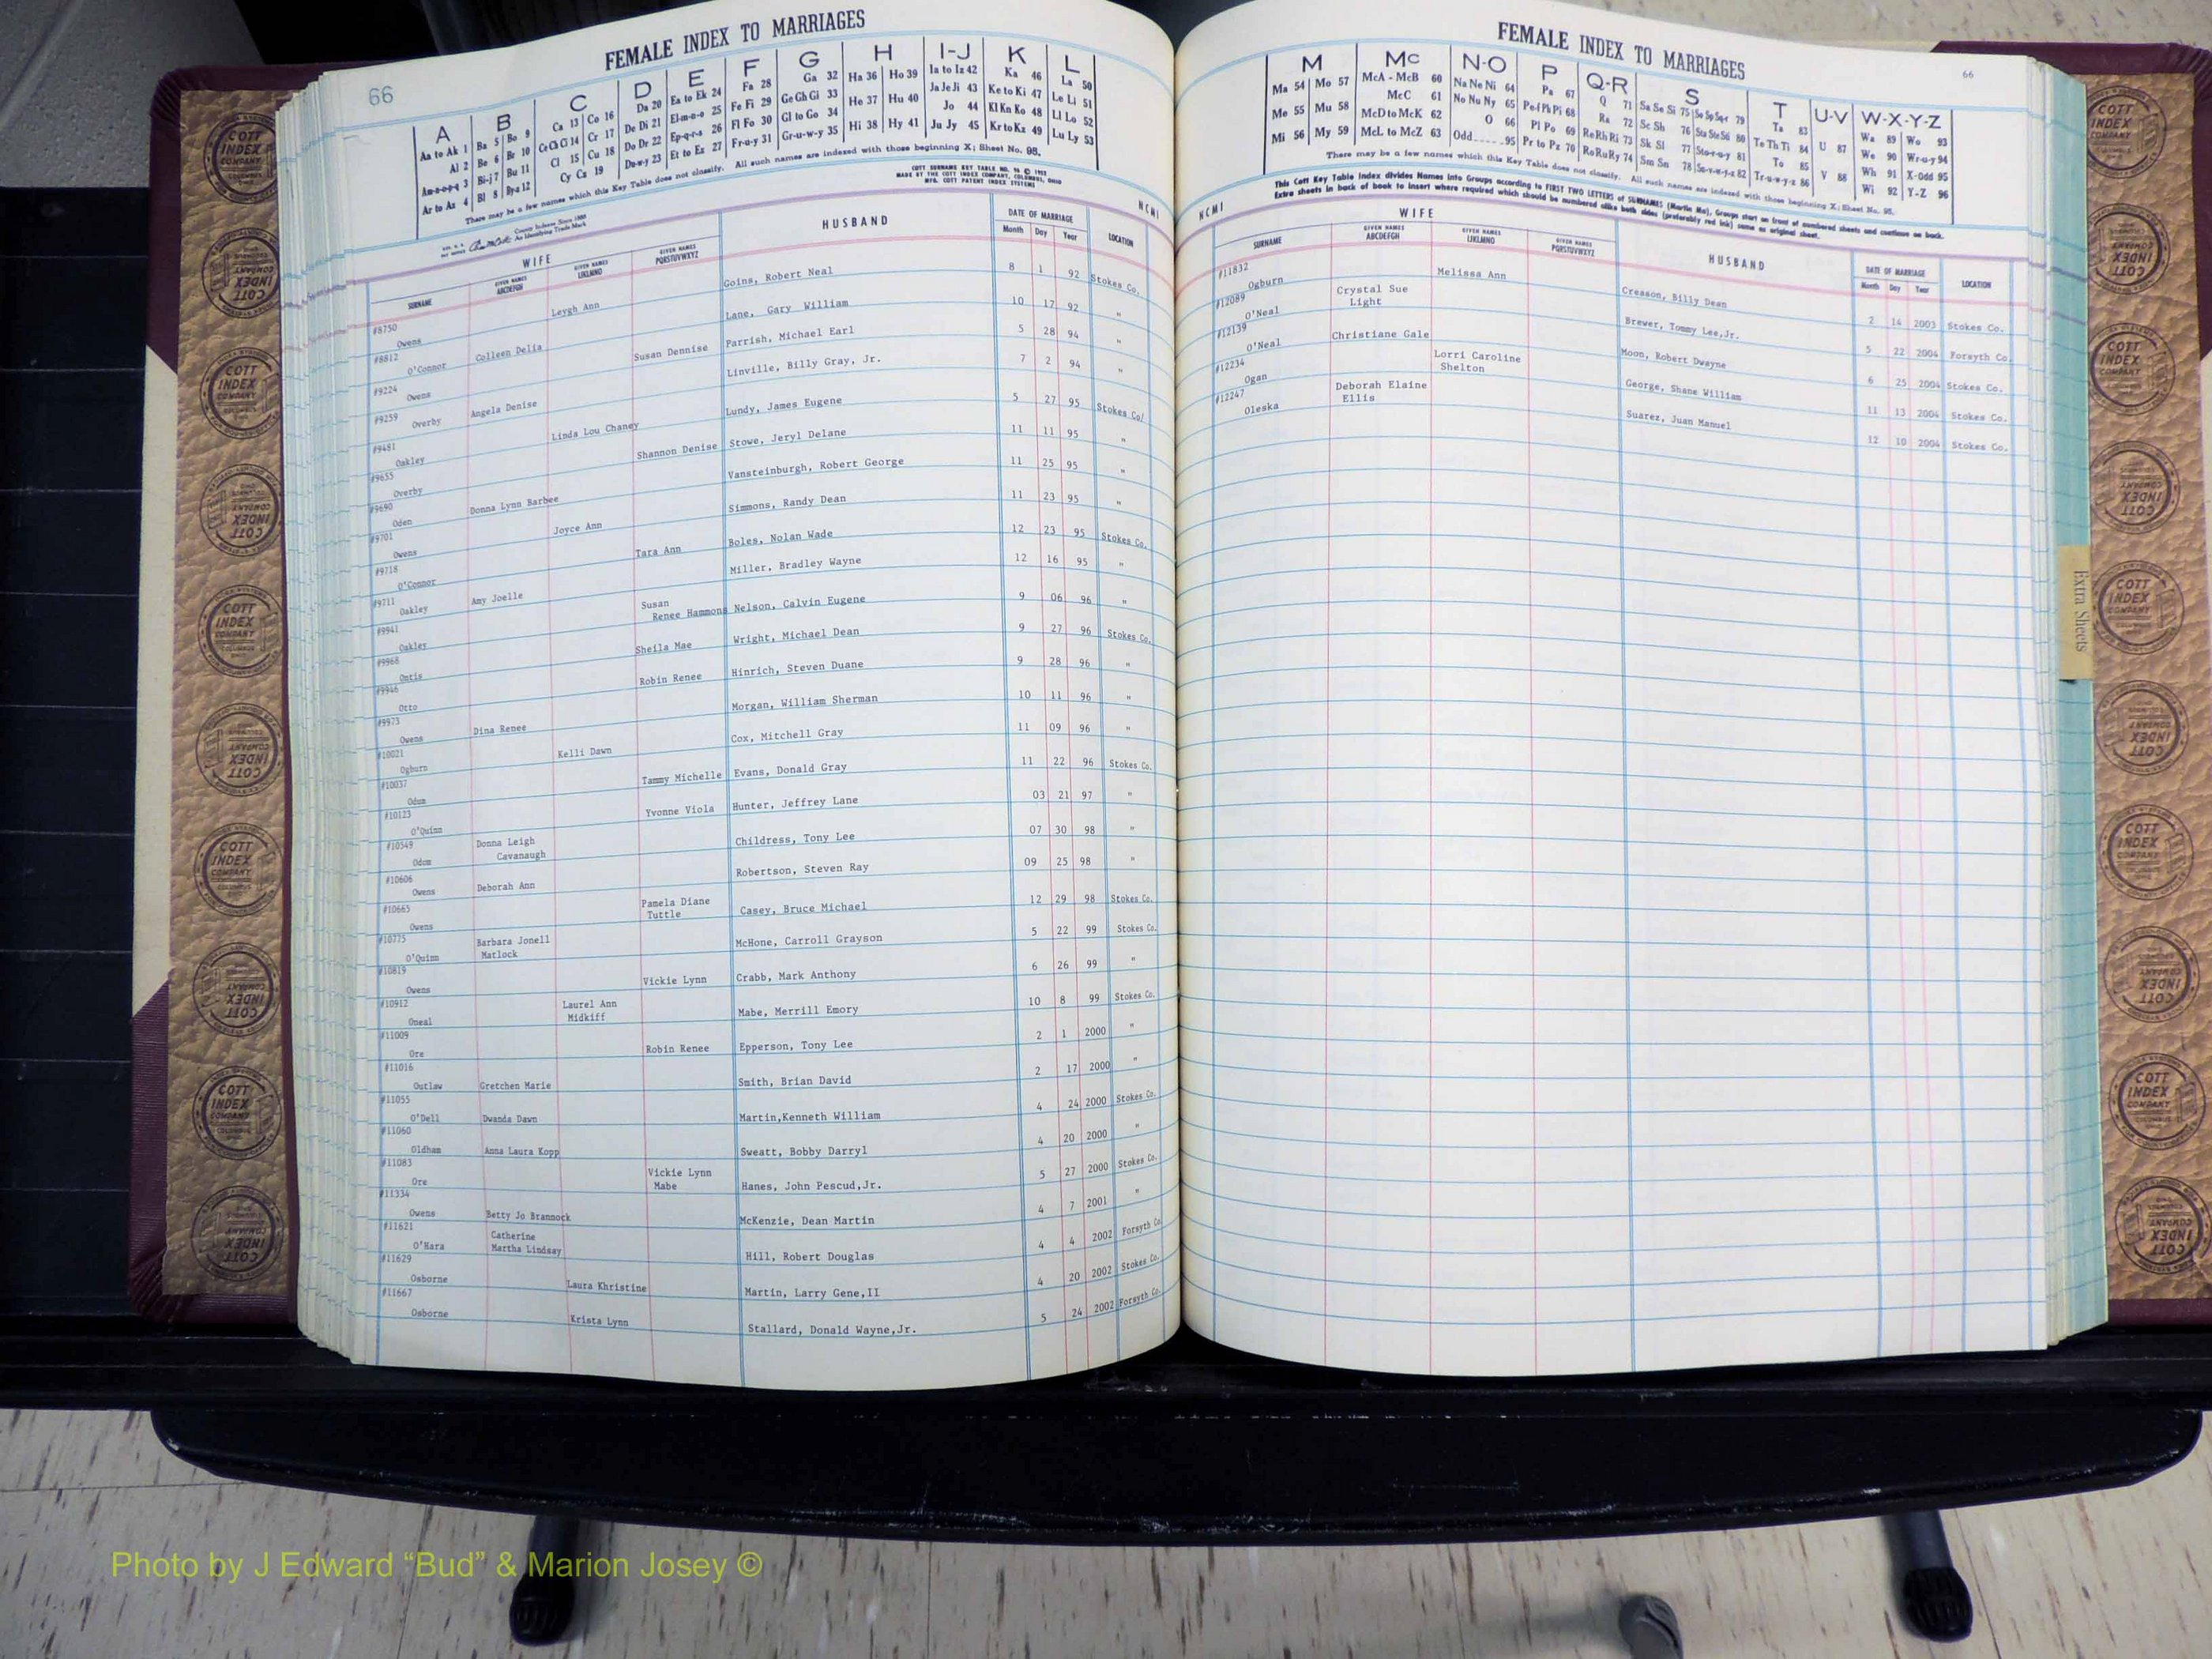 66
FEMALE INDEX TO MARRIAGES
A B C D E F G H I-J K L
Aa to Ak 1 Ba 5 Bo 9 Ca 13 Co 16 Da 20 Ea to Ek 24 Fa 28 Ga 32 Ha 36 Ho 39 Ia to Iz 42 Ka 46 La 50
Al 2 Be 6 Br 10 Ce Ch Ci 14 Cr 17 De Di 21 El-m-n-o 25 Fe Fi 29 Ge Gh Gi 33 He 37 Hu 40 Ja Je Ji 43 Ke to Ki 47 Le Li 51
Am-n-o-p-q 3 Bi-j 7 Bu 11 Cl 15 Cu 18 Do Dr 22 Ep-q-r-s 26 Fl Fo 30 Gl to Go 34 Hi 38 Hy 41 Jo 44 Kl Kn Ko 48 Ll Lo 52
Ar to Az 4 Bl 8 Bya 12 Cy Cz 19 Du-w-y 23 Et to Ez 27 Fr-u-y 31 Gr-u-w-y 35 Ju Jy 45 Kr to Kz 49 Lu Ly 53
There may be a few names which this Key Table does not classify. All such names are indexed with those beginning X; Sheet No. 95.
COTT SURNAME KEY TABLE NO. 96 © 1952
MADE BY THE COTT INDEX COMPANY, COLUMBUS, OHIO
MFG. COTT PATENT INDEX SYSTEMS
County Indexes Since 1888
An Identifying Trade Mark
NCMI
WIFE HUSBAND DATE OF MARRIAGE LOCATION
SURNAME GIVEN NAMES ABCDEFGH GIVEN NAMES IJKLMNO GIVEN NAMES PQRSTUVWXYZ Month Day Year
#8750 Owens Leygh Ann Goins, Robert Neal 8 1 92 Stokes Co.
#8812 O'Connor Colleen Delia Lane, Gary William 10 17 92 "
#9224 Owens Susan Dennise Parrish, Michael Earl 5 28 94 "
#9259 Overby Angela Denise Linville, Billy Gray, Jr. 7 2 94 "
#9481 Oakley Linda Lou Chaney Lundy, James Eugene 5 27 95 Stokes Co/
#9655 Overby Shannon Denise Stowe, Jeryl Delane 11 11 95 "
#9690 Oden Donna Lynn Barbee Vansteinburgh, Robert George 11 25 95 "
#9701 Owens Joyce Ann Simmons, Randy Dean 11 23 95 "
#9718 O'Connor Tara Ann Boles, Nolan Wade 12 23 95 Stokes Co.
#9711 Oakley Amy Joelle Miller, Bradley Wayne 12 16 95 "
#9941 Oakley Susan Renee Hammons Nelson, Calvin Eugene 9 06 96 "
#9968 Ontis Sheila Mae Wright, Michael Dean 9 27 96 Stokes Co.
#9946 Otto Robin Renee Hinrich, Steven Duane 9 28 96 "
#9973 Owens Dina Renee Morgan, William Sherman 10 11 96 "
#10021 Ogburn Kelli Dawn Cox, Mitchell Gray 11 09 96 "
#10037 Odum Tammy Michelle Evans, Donald Gray 11 22 96 Stokes Co.
#10123 O'Quinn Yvonne Viola Hunter, Jeffrey Lane 03 21 97 "
#10549 Odom Donna Leigh Cavanaugh Childress, Tony Lee 07 30 98 "
#10606 Owens Deborah Ann Robertson, Steven Ray 09 25 98 "
#10665 Owens Pamela Diane Tuttle Casey, Bruce Michael 12 29 98 Stokes Co.
#10775 O'Quinn Barbara Jonell Matlock McHone, Carroll Grayson 5 22 99 Stokes Co.
#10819 Owens Vickie Lynn Crabb, Mark Anthony 6 26 99 "
#10912 Oneal Laurel Ann Midkiff Mabe, Merrill Emory 10 8 99 Stokes Co.
#11009 Ore Robin Renee Epperson, Tony Lee 2 1 2000 "
#11016 Outlaw Gretchen Marie Smith, Brian David 2 17 2000 "
#11055 O'Dell Dwanda Dawn Martin,Kenneth William 4 24 2000 Stokes Co.
#11060 Oldham Anna Laura Kopp Sweatt, Bobby Darryl 4 20 2000 "
#11083 Ore Vickie Lynn Mabe Hanes, John Pescud,Jr. 5 27 2000 Stokes Co.
#11334 Owens Betty Jo Brannock McKenzie, Dean Martin 4 7 2001 "
#11621 O'Hara Catherine Martha Lindsay Hill, Robert Douglas 4 4 2002 Forsyth Co
#11629 Osborne Laura Khristine Martin, Larry Gene,II 4 20 2002 Stokes Co.
#11667 Osborne Krista Lynn Stallard, Donald Wayne,Jr. 5 24 2002 Forsyth Co.
FEMALE INDEX TO MARRIAGES
66
M Mc N-O P Q-R S T U-V W-X-Y-Z
Ma 54 Mo 57 McA - McB 60 Na Ne Ni 64 Pa 67 Q 71 Sa Se Si 75 So Sp Sq-r 79 Ta 83 Wa 89 Wo 93
Me 55 Mu 58 McC 61 No Nu Ny 65 Pe-f Ph Pi 68 Ra 72 Sc Sh 76 Sta Ste Sti 80 Te Th Ti 84 U 87 We 90 Wr-u-y 94
Mi 56 My 59 McD to McK 62 O 66 Pl Po 69 Re Rh Ri 73 Sk Sl 77 Sto-r-u-y 81 To 85 Wh 91 X-Odd 95
McL to McZ 63 Odd 95 Pr to Pz 70 Ro Ru Ry 74 Sm Sn 78 Su-v-w-y-z 82 Tr-u-w-y-z 86 V 88 Wi 92 Y-Z 96
There may be a few names which this Key Table does not classify. All such names are indexed with those beginning X; Sheet No. 95.
This Cott Key Table Index divides Names into Groups according to FIRST TWO LETTERS of SURNAMES (Martin Ma), Groups start on front of numbered sheets and continue on back.
Extra sheets in back of book to insert where required which should be numbered alike both sides (preferably red ink) same as original sheet.
NCMI
WIFE HUSBAND DATE OF MARRIAGE LOCATION
SURNAME GIVEN NAMES ABCDEFGH GIVEN NAMES IJKLMNO GIVEN NAMES PQRSTUVWXYZ Month Day Year
#11832 Ogburn Melissa Ann Creason, Billy Dean 2 14 2003 Stokes Co.
#12089 O'Neal Crystal Sue Light Brewer, Tommy Lee,Jr. 5 22 2004 Forsyth Co.
#12139 O'Neal Christiane Gale Moon, Robert Dwayne 6 25 2004 Stokes Co.
#12234 Ogan Lorri Caroline Shelton George, Shane William 11 13 2004 Stokes Co.
#12247 Oleska Deborah Elaine Ellis Suarez, Juan Manuel 12 10 2004 Stokes Co.
Extra Sheets
COTT INDEX COMPANY
Photo by J Edward “Bud” & Marion Josey ©